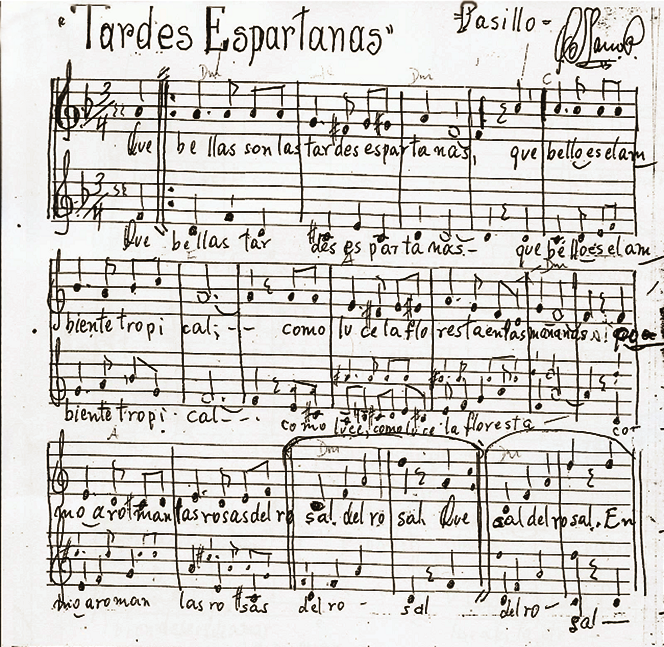 "Tardes Espartanas" Pasillo -
Dm Dm C
Que be llas son las tar des espar ta nas, que bello es el am
Que be llas tar des es par ta nas.- que bé lloes el am
A Dm
biente tropi cal; - - como lu ce la flo resta en las mañanas
biente tropi cal - - . co mo luce, como lu ce la floresta - cor
A Dm Dm
mo aro man las rosas del ro sal. del ro sal. Que sal del rosal. En
mo aro man las ro sas del ro - sal del ro - sal -